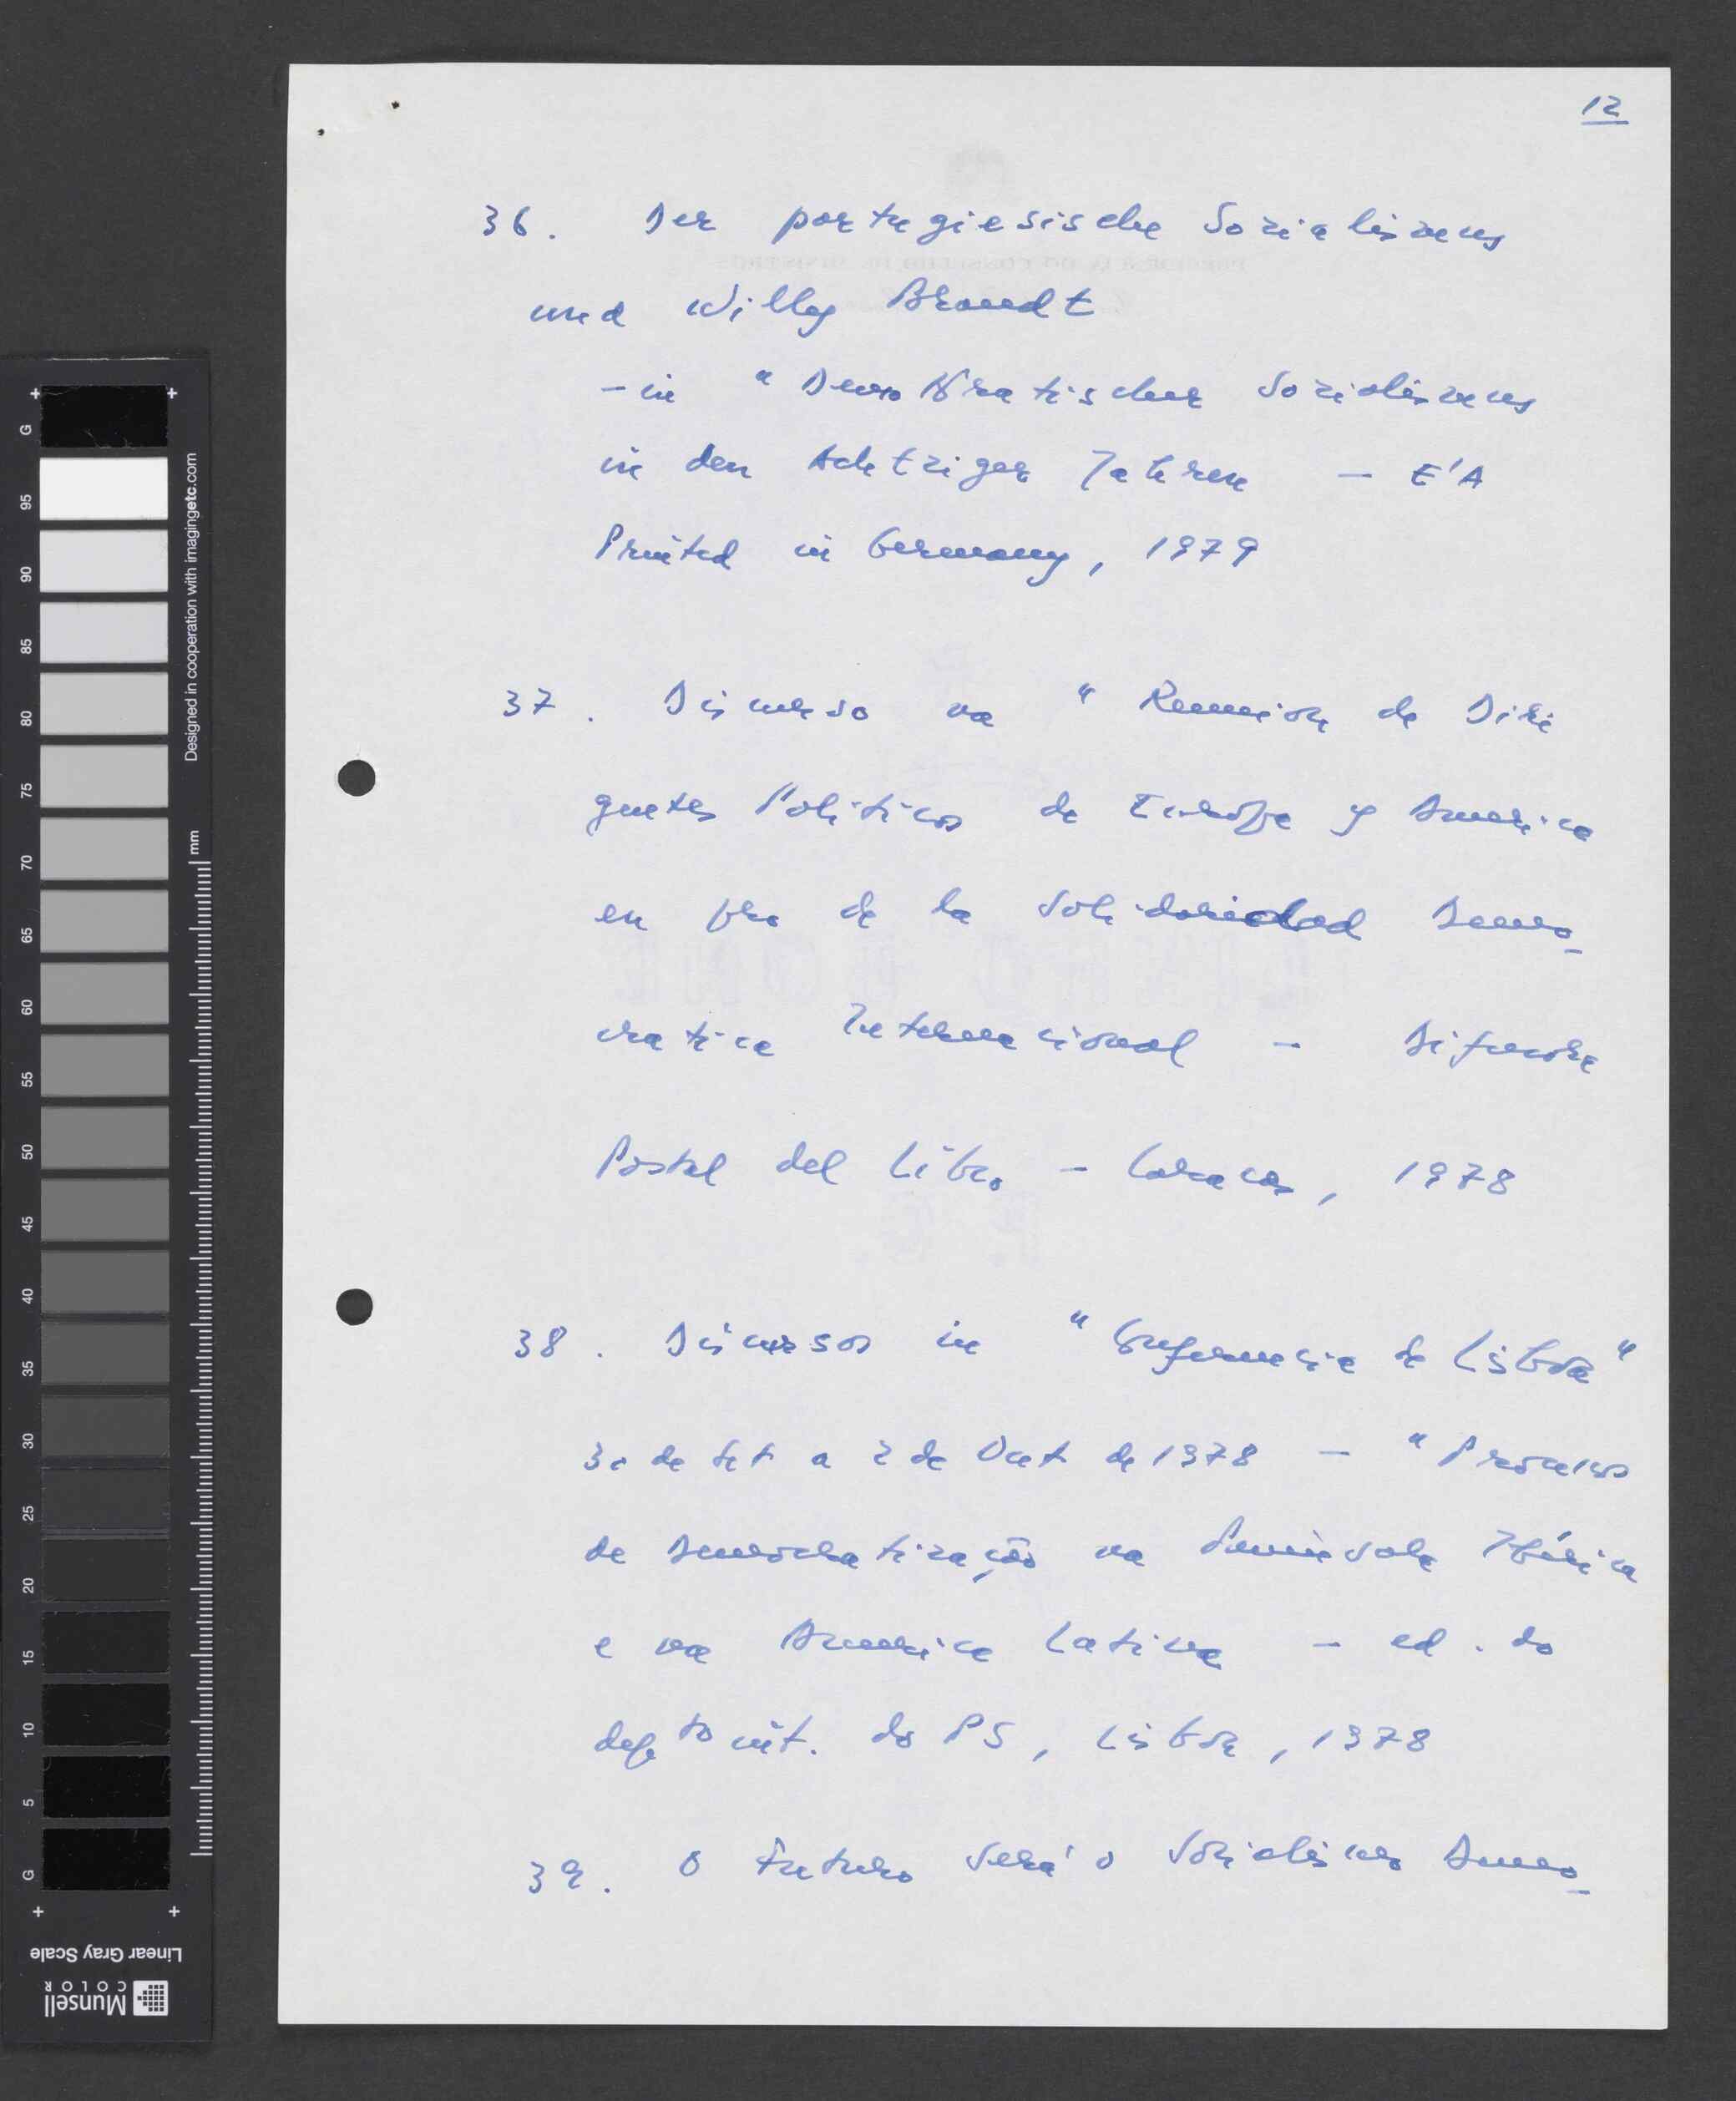 12
36. Der portugiesische Sozialismus
und Willy Brandt
- in "Demokratischer Sozialismus
in den Achtziger Jahren - E'A
Printed in Germany, 1979
37. Discurso na "Reunion de Diri
gentes Politicos de Europa y America
en pro de la Solidariedad Demo-
cratica Internacional - Difusora
Postal del Libro - Caracas, 1978
38. Discursos in "Conferencia de Lisboa"
30 de Set a 2 de Out de 1978 - "Processos
de Democratização na Peninsula Ibérica
e na America Latina - ed. do
depto int. do PS, Lisboa, 1978
39. O Futuro será o Socialismo Demo-
G 95 90 85 80 75 70 65 60 55 50 45 40 35 30 25 20 15 10 5 G
Designed in cooperation with imagingetc.com
mm
Linear Gray Scale
Munsell
COLOR